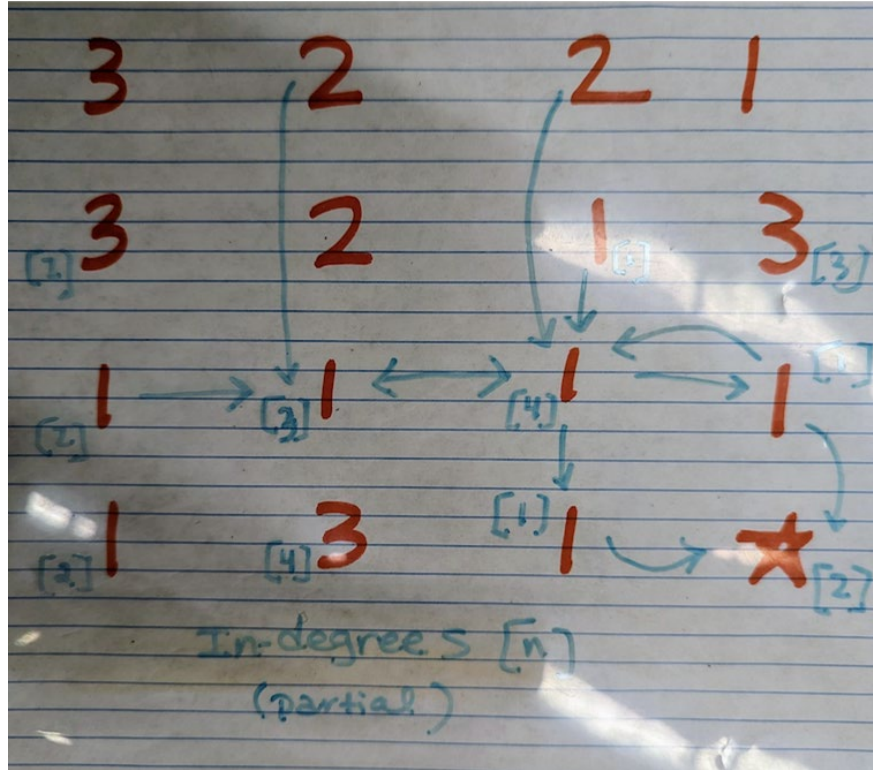 3 2 2 1
3 2 1 3 [3]
1 [3] 1 [4] 1 1
[4] 3 [1] 1 ★ [2]
In-degrees [n]
(partial)